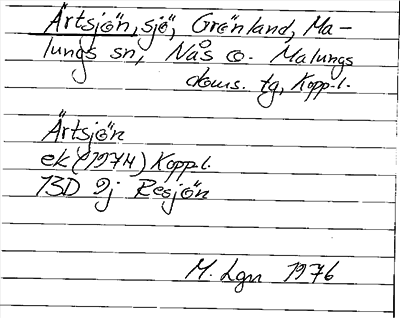 Ärtsjön, sjö, Grönland, Ma-
lungs sn, Nås o. Malungs
doms. tg, Kopp.l.
Ärtsjön
ek (1974) Kopp.l.
13D 9j Resjön
M. Lgn 1976